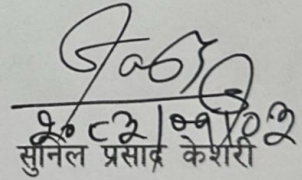 २०८२|०९|०२
सुनिल प्रसाद केशरी